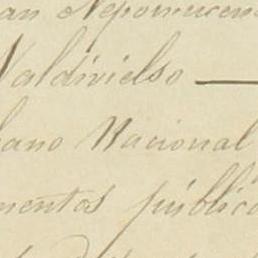 an Nepomucen
Valdivielso
ano Nacional
mentos públic